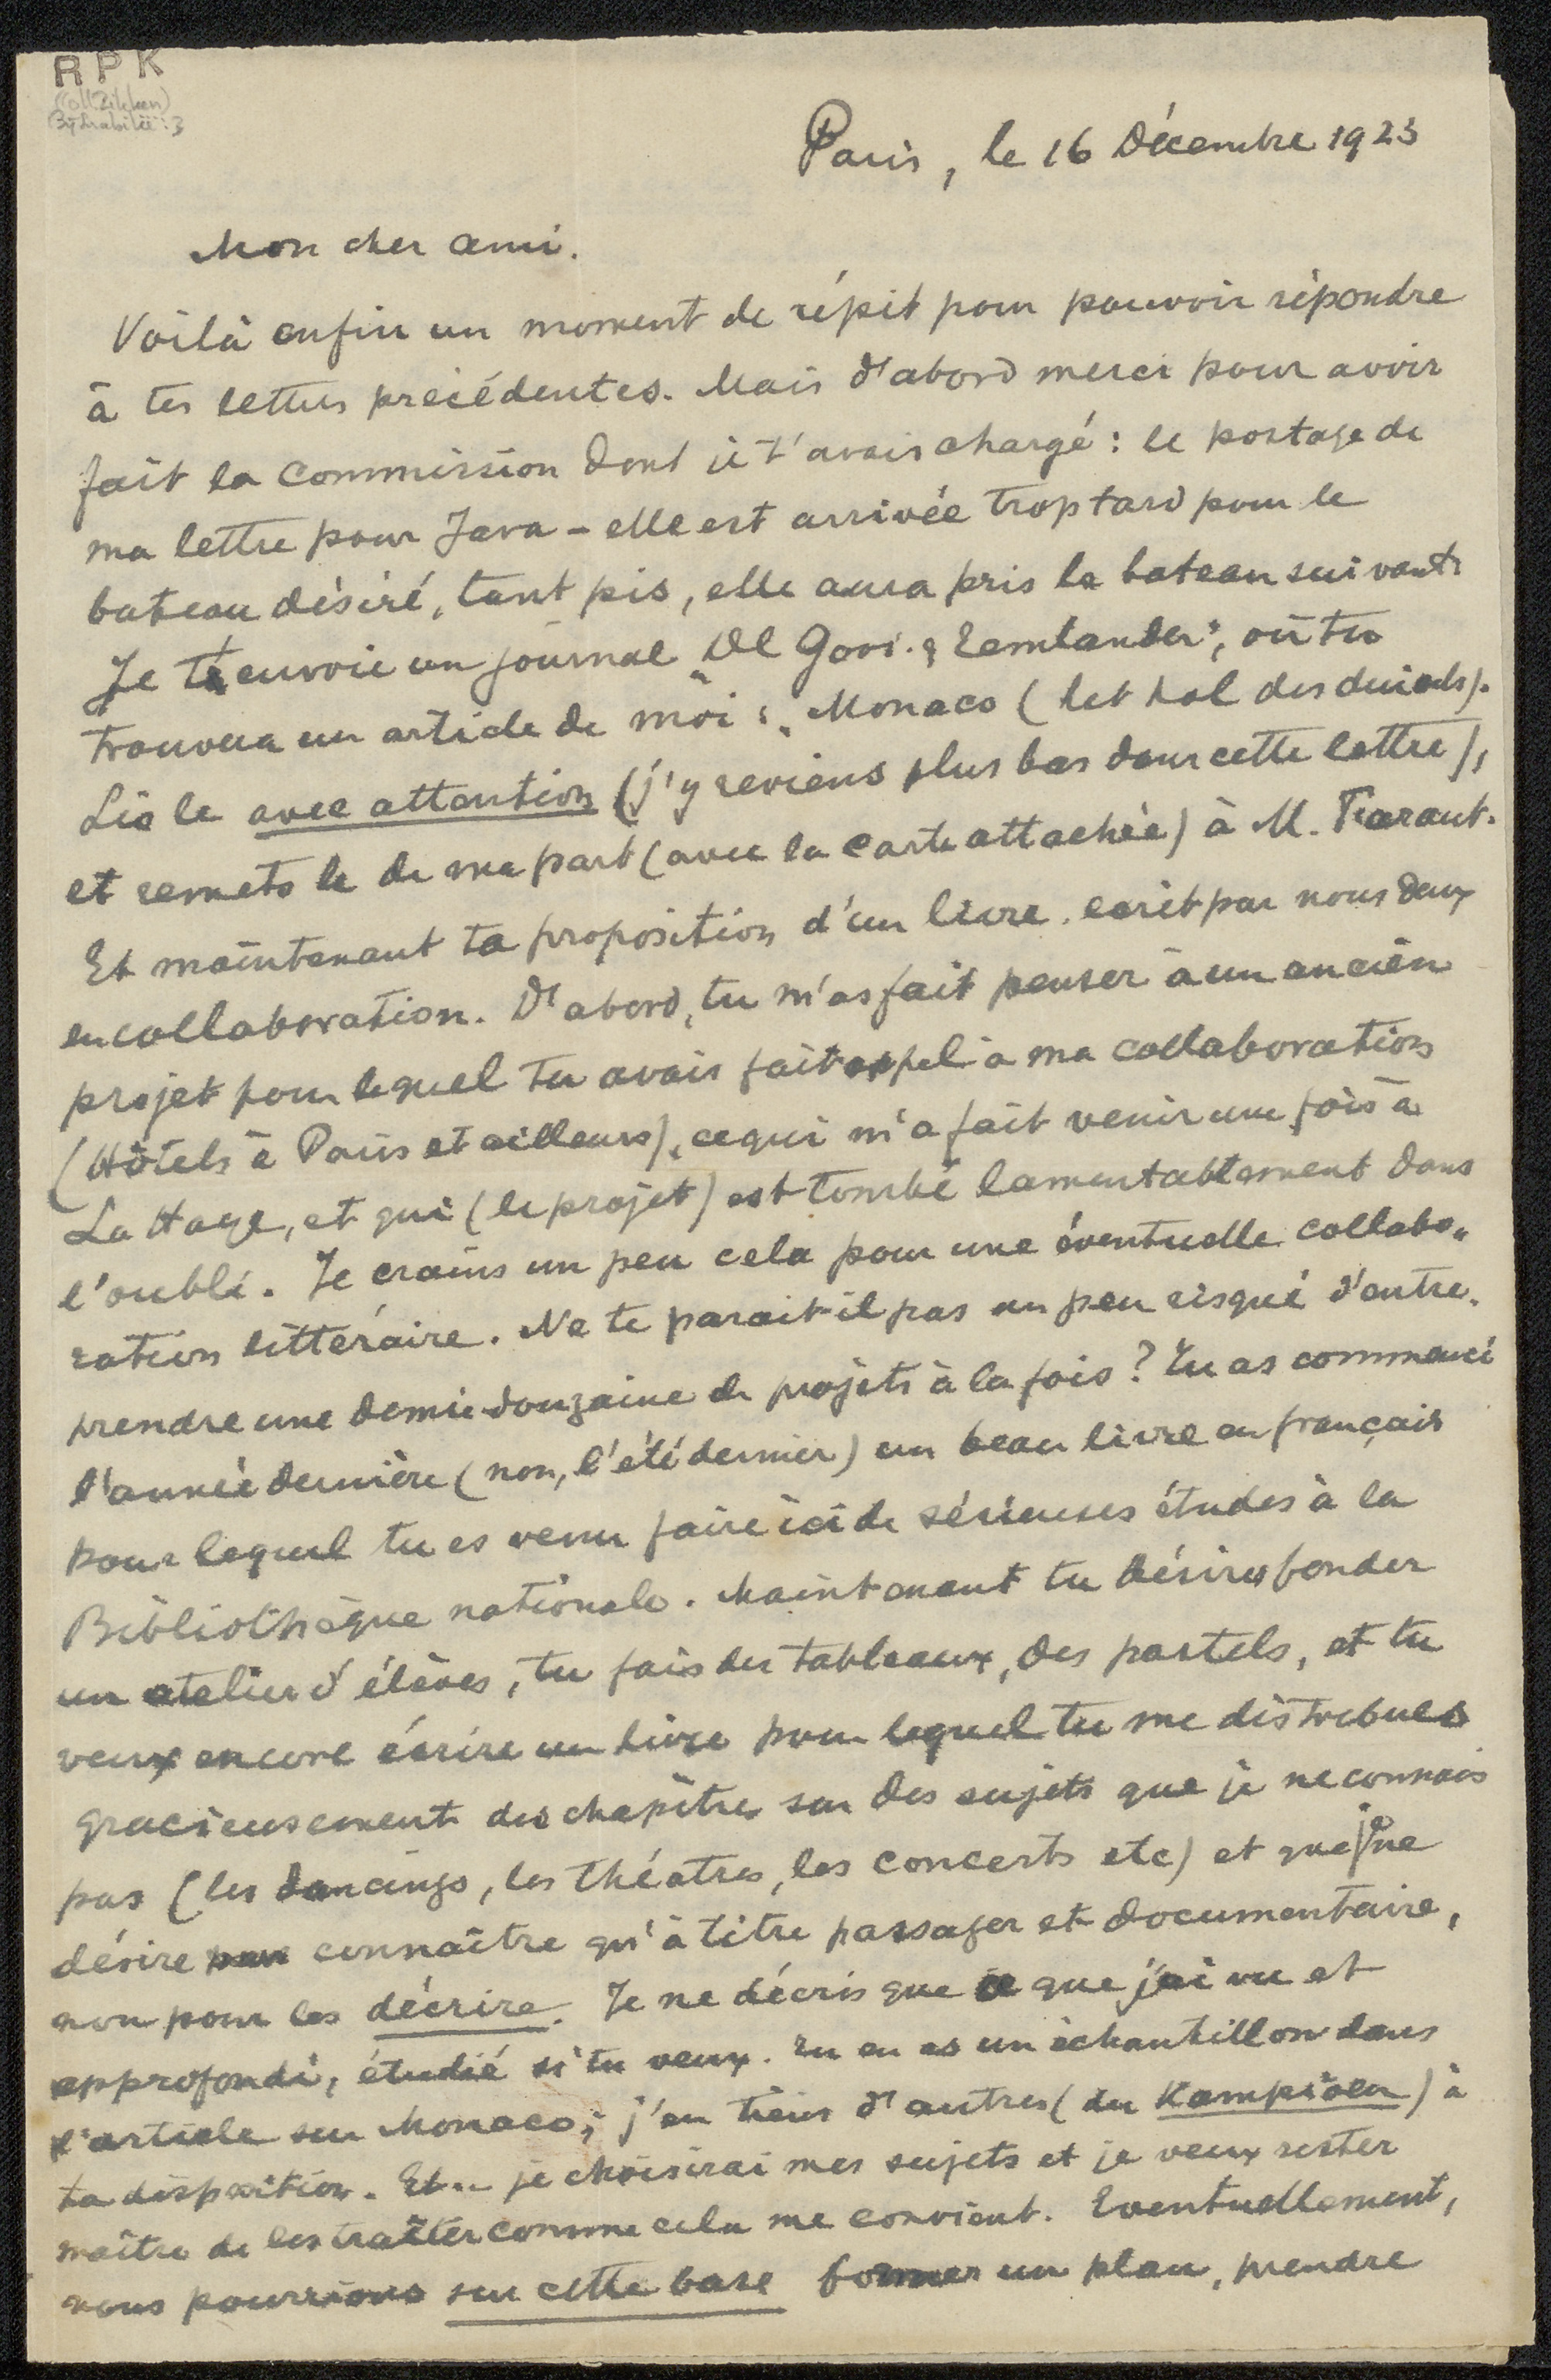 RPK
Paris, le 16 Décembre 1923
Mon cher ami.
Voilà enfin un moment de répit pour pouvoir répondre
à tes lettres précédentes. Mais d'abord merci pour avoir
fait la commission dont je t'avais chargé : le portage de
ma lettre pour Java – elle est arrivée trop tard pour le
bateau désiré, tant pis, elle aura pris le bateau suivant.
Je t'envoie un journal „De Gooi- & Eemlander", où tu
trouvera un article de moi : „Monaco (het hol des duivels).
Lis le avec attention (j'y reviens plus bas dans cette lettre),
et remets le de ma part (avec la carte attachée) à M.
Et maintenant ta proposition d'un livre. ecrit par nous deux
en collaboration. D'abord, tu m'as fait penser à un ancien
projet pour lequel tu avais fait appel à ma collaboration
(Hôtels à Paris et ailleurs), ce qui m'a fait venir une fois à
La Haye, et qui (le projet) est tombé lamentablement dans
l'oubli. Je crains un peu cela pour une éventuelle collabo„
ration littéraire. Ne te parait-il pas un peu risqué d'entre„
prendre une demie-douzaine de projets à la fois ? Tu as commencé
l'année dernière (non, l'été dernier) un beau livre en français
pour lequel tu es venu faire ici de sérieuses études à la
Bibliothèque nationale. Maintenant tu désires fonder
un atelier d'élèves, tu fais des tableaux, des pastels, et tu
veux encore écrire un livre pour lequel tu me distribues
gracieusement des chapitres sur des sujets que je ne connais
pas (les dancings, les théatres, les concerts etc) et que je ne
désire connaître qu'à titre passager et documentaire,
non pour les décrire. Je ne décris que ce que j'ai vu et
approfondi, étudié si tu veux. Tu en as un échantillon dans
l'article sur Monaco ; j'en tiens d'autres (du Kampioen) à
ta disposition. Et .. je choisirai mes sujets et je veux rester
maître de les traiter comme cela me convient. Eventuellement,
nous pourrions sur cette base former un plan, prendre